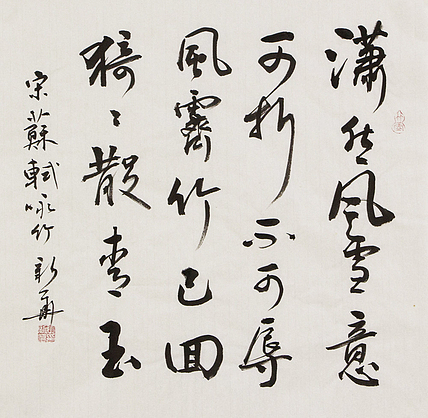 瀟然風雪意
可折不可辱
風霽竹已回
猗〻散青玉
宋蘇軾咏竹 新